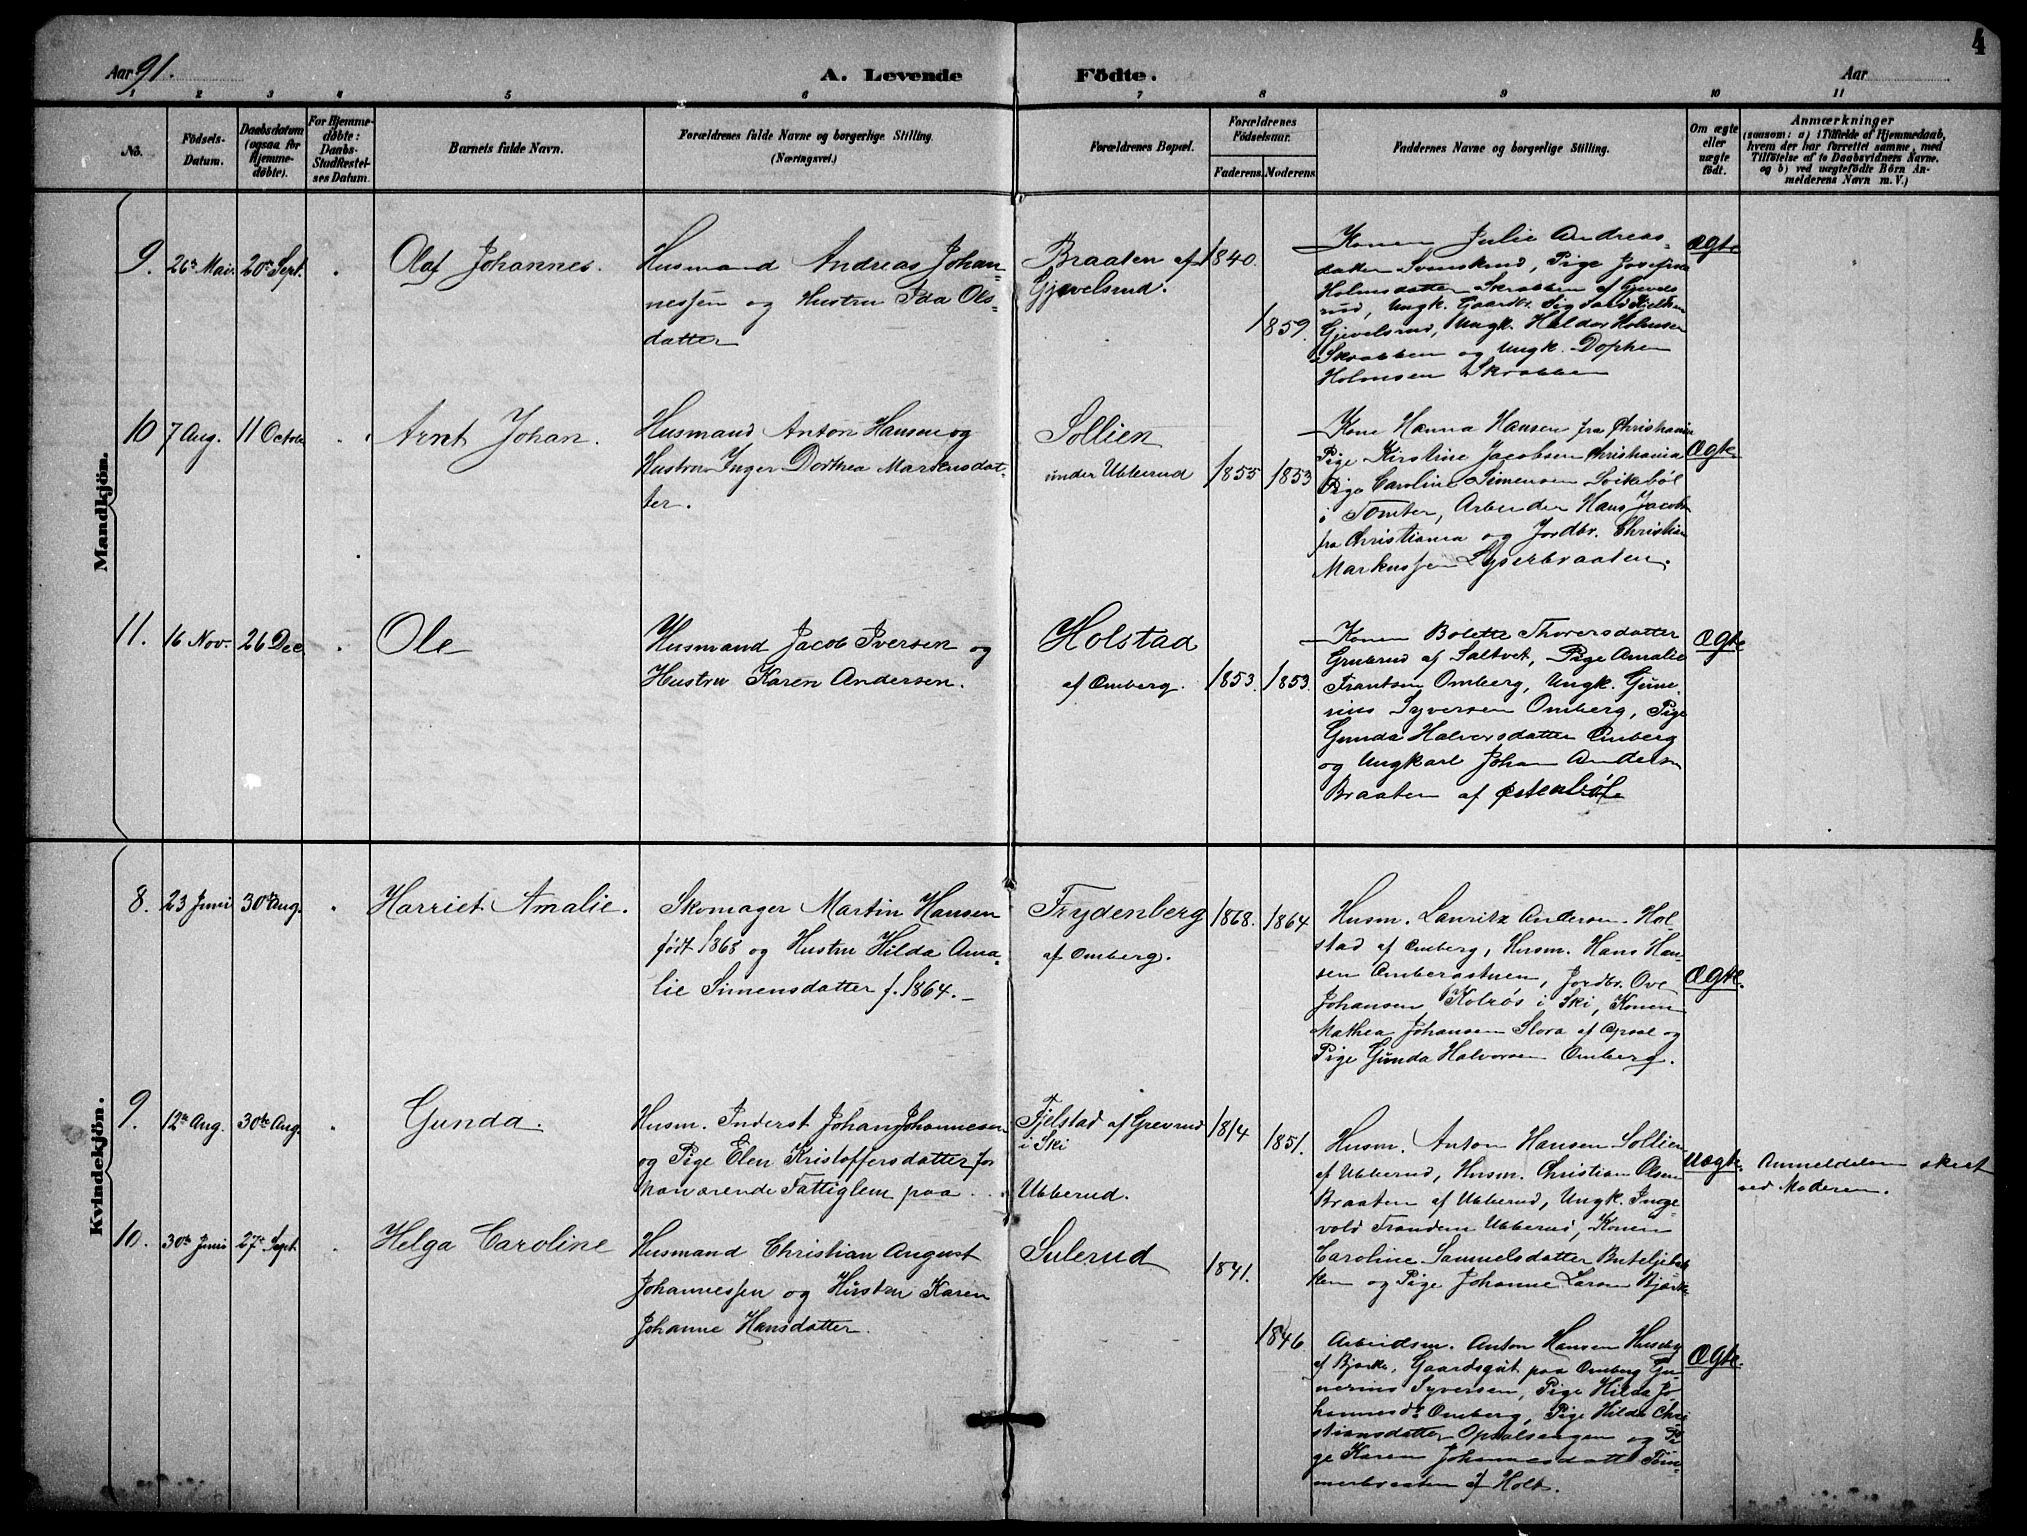 4
Aar 91.
A. Levende Födte.
Aar
1 2 3 4 5 6 7 8 9 10 11
No.
Födsels-
Datum.
Daabsdatum
(ogsaa for
Hjemme-
döbte).
For Hjemme-
döbte:
Daabs-
Stadfæstel-
ses Datum.
Barnets fulde Navn.
Forældrenes fulde Navne og borgerlige Stilling.
(Næringsvei.)
Forældrenes Bopæl.
Forældrenes
Födselsaar.
Faderens. Moderens.
Faddernes Navne og borgerlige Stilling.
Om ægte
eller
uægte
födt.
Anmærkninger
(saasom: a) i Tilfælde af Hjemmedaab,
hvem der har forrettet samme, med
Tilföielse af to Daabsvidners Navne.
og b) ved uægtefödte Börn An-
melderens Navn m. V.)
Mandkjön.
9. 26de Mai. 20de Sept. Olaf Johannes.
Husmand Andreas Johan-
nessen og Hustru Ida Ols-
datter
Braaten af
Gjevelsrud.
1840.
1859.
Konen Julie Andreas-
datter Svenskerud, Pige Josefine
Holmsdatter Skrabben af Gjevels
rud, Ungk. Gaardbr.
Gjevelsrud, Ungk. Haldor Holmsen
Skrabben og Ungk.
Holmsen Skrabben
Ægte
10 7 Aug. 11 Octobr Arnt Johan.
Husmand Anton Hansen og
Hustru Inger Dorthea Markusdat-
ter.
Sollien
under Ubberud
1855 1853
Kone Hanna Hansen fra Christiania
Pige Kirstine Jacobsen Christiania
Pige Caroline Simensen Svikebøl
i Tomter, Arbeider Hans Jacobs
fra Christiania og Jordbr. Christian
Markussen Lyserbraaten.
Ægte.
11. 16 Nov. 26 Dec. Ole
Husmand Jacob Iversen og
Hustru Karen Andersen.
Holstad
af Omberg.
1853. 1853.
Konen Bolette Thorersdatter
Gruberud af Saltvet, Pige Amalie
Frantsen Omberg, Ungk. Gune-
rius Syversen Omberg, Pige
Gunda Halvorsdatter Omberg
og Ungkarl Johan Andersn
Braaten af Østenbøl
Ægte
Kvindekjön.
8. 23 Juni 30te Aug. Harriet Amalie.
Skomager Martin Hansen
født 1868 og Hustru Hilda Ama-
lie Simensdatter f. 1864.
Frydenberg
af Omberg.
1868. 1864
Husm. Lauritz Andersen Hol-
stad af Omberg, Husm. Hans Han-
sen Ombergstuen, Jordbr. Ove
Johansen Kolrös i Ski, Konen
Mathea Johansen Slora af Opsal og
Pige Gunda Halvorsen Omberg.
Ægte.
9. 12te Aug. 30te Aug. Gunda.
Husm. Inderst Johan Johannesen
og Pige Elen Kristoffersdatter for
nærværende Fattiglem paa
Fjelstad af Grevrud
i Ski
Ubberud.
1814 1851.
Husm. Anton Hansen Sollien
af Ubberud, Husm. Christian Olsen
Braaten af Ubberud, Ungk. Inge-
vold Ubberud, Konen
Caroline Samuelsdatter
og Pige Johanne Larsen Bjørk
Uægte.
Anmeldelsen skeet
ved Moderen.
10. 30te Juni 27de Sept. Helga Caroline
Husmand Christian August
Johannessen og Hustru Karen
Johanne Hansdatter.
Sulerud
1841.
1846
Arbeidsm. Anton Hansen Huseby
af Bjerke, Gaardsgut paa Omberg Gu-
nerius Syversen, Pige Hilda Jo-
hannesdr. Omberg, Pige Hilda Chri
stiansdatter Opsalseangen og Pi
ge Karen Johannesdatter Töm-
merbraaten af Holt.
Ægte.